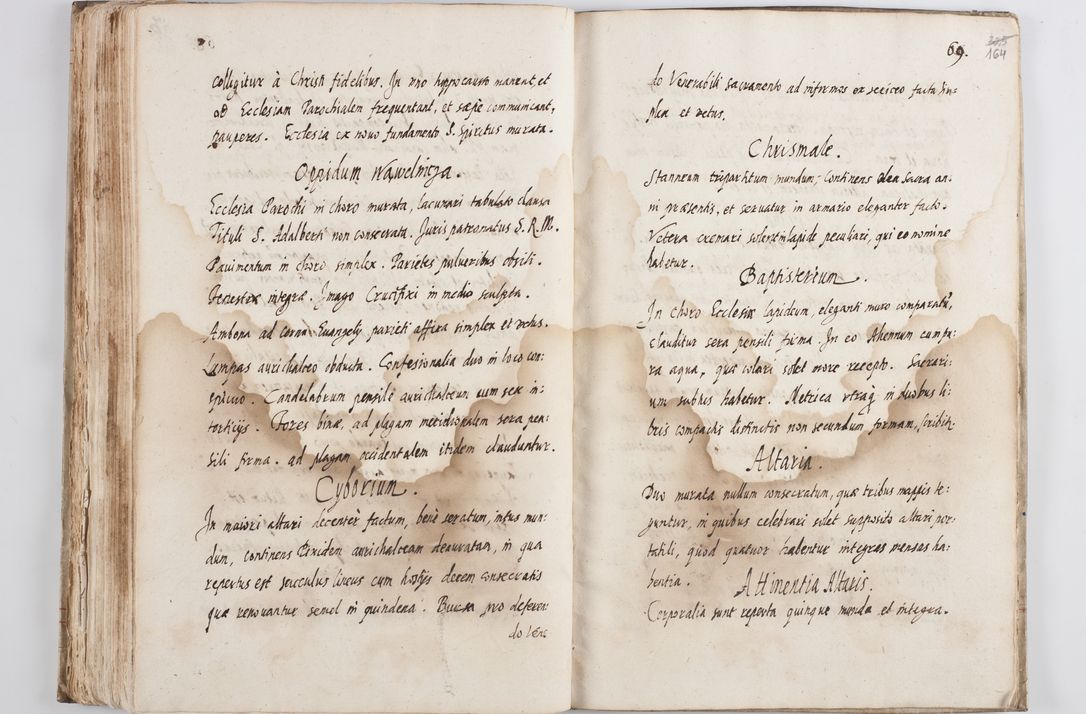 colligitur à Christi fidelibus. In uno hyppocausto manent, et
ad Ecclesiam Parochialem frequentant, et sæpe communicant,
pauperes. Ecclesia ex nouo fundamento S. Spiritus murata.
Oppidum Wawelnicza.
Ecclesia Parochi in choro murata, lacunari tabulato clausa
Tituli S. Adalberti non consecrata. Juris patronatus S. R. M.
Pauimentum in choro simplex. Parietes pulueribus obsiti.
Fenestræ integræ. Imago Crucifixi in medio sculpta.
Ambona ad cornu Euangely parieti affixa simplex et vetus.
Lampas aurichalceo obducta. Confesionalia duo in loco con:
spicuo. Candelabrum pensile aurichalceum cum sex in:
torticys. Fores binæ, ad plagam meridionalem sera pen:
sili firma. ad plagam occidentalem itidem clauduntur.
Cyborium.
In maiori altari decentèr factum, benè seratum, intus mun:
dum, continens Pixidem aurichalceam deauratam, in qua
repertus est sacculus lineus cum hostys decem consecratis
quæ renouantur semel in quindena. Bursa pro deferen
do Vene
69.
164
do Venerabili sacramento ad infirmos ex sericeo facta sim
plex et vetus.
Chrismale.
Stanneum tripartitum mundum, continens olea sacra an:
ni præsentis, et seruatur in armario eleganter facto.
Vetera cremari solent in lapide peculiari, qui eo nomine
habetur.
Baptisterium.
In choro Ecclesiæ lapideum, eleganti muro comparatũ,
clauditur sera pensili firma. In eo Ahenum cum pu:
ra aqua, quæ colari solet more recepto. Sacrari:
um subtus habetur. Metrica vtraq in duobus li:
bris compactis distinctis non secundum formam, scribit:
Altaria.
Duo murata nullum consecratum, quæ tribus mappis te:
guntur, in quibus celebrari solet supposito altari por:
tatili, quod quatuor habentur integras mensas ha:
bentia.
Attinentia Altaris.
Corporalia sunt reperta quinque munda et integra.